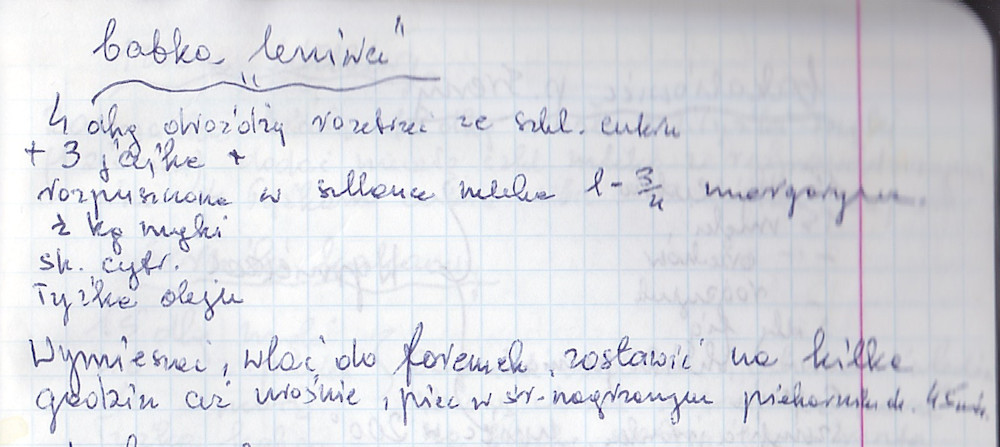 babka „leniwa"
4 dkg drożdży rozetrzeć ze szkl. cukru
+ 3 jajka +
rozpuszczona w szklance mleka 1 - 3/4 margaryna.
½ kg mąki
sk. cytr.
łyżka oleju
Wymieszać, wlać do foremek, zostawić na kilka
godzin aż urośnie, piec w śr. nagrzanym piekarniku ok. 45 min.